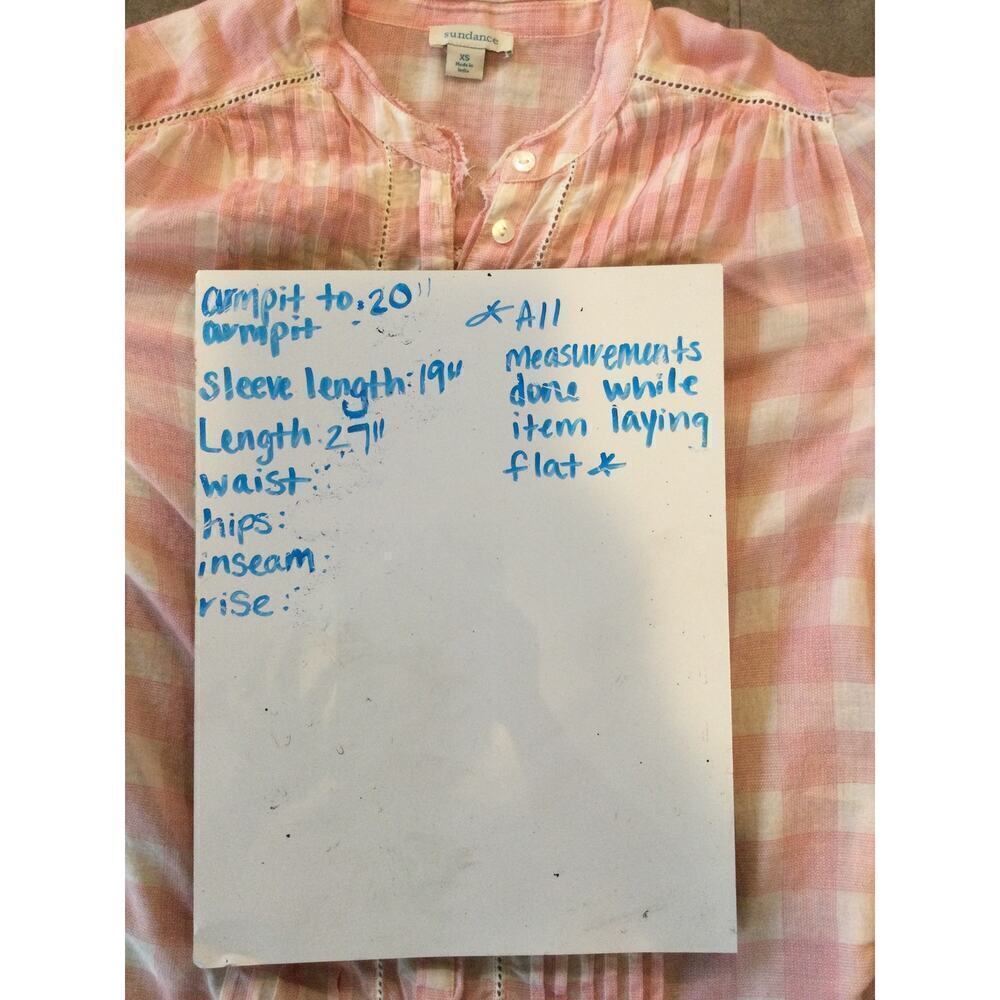 sundance
XS
Made in
India
armpit to: 20"
armpit
sleeve length: 19"
Length: 27"
waist:
hips:
inseam:
rise:
*All
measurements
done while
item laying
flat*